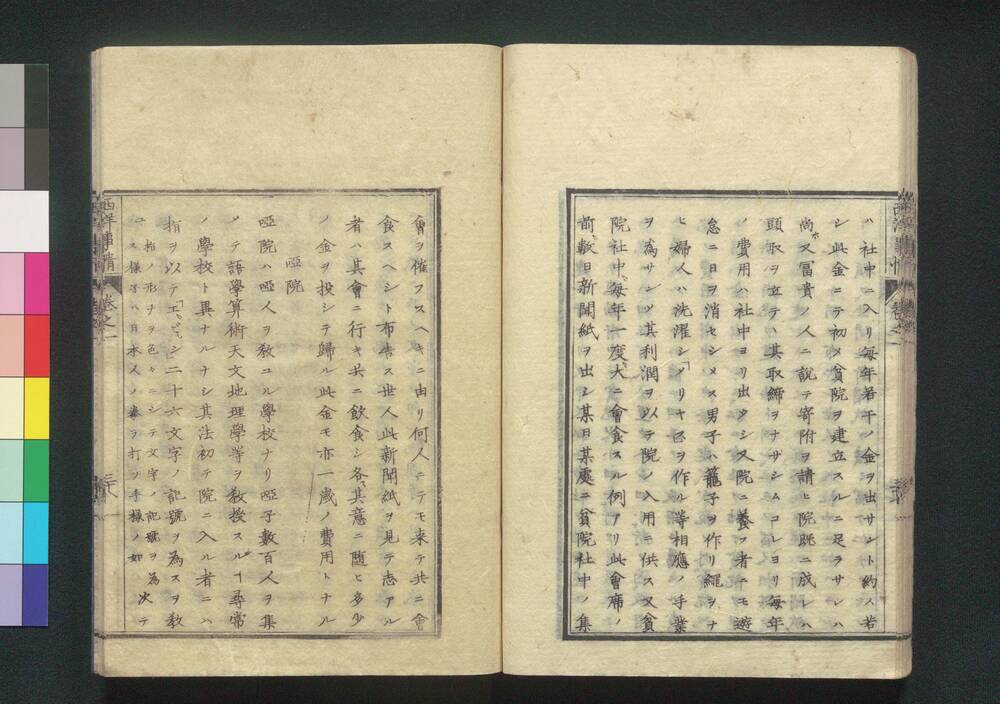 ハ社中ニ入リ毎年若干ノ金ヲ出サント約ス若
シ此金ニテ初メ貧院ヲ建立スルニ足ラサレハ
尚ホ又冨貴ノ人ニ説テ寄附ヲ請ヒ院既ニ成レハ
頭取ヲ立テヽ其取締ヲナサシムコレヨリ毎年
ノ費用ハ社中ヨリ出タシ又院ニ養フ者ニモ遊
怠ニ日ヲ消セシメス男子ハ籠子ヲ作リ縄ヲナ
ヒ婦人ハ洗濯シメリヤスヲ作ル等相應ノ手業
ヲ為サシメ其利潤ヲ以テ院ノ入用ニ供ス又貧
院社中毎年一度大ニ會食スル例アリ此會席ノ
前数日新聞紙ヲ出シ某日某處ニ貧院社中ノ集
西洋事情
卷之一
會ヲ催フスヘキニ由リ何人ニテモ来テ共ニ會
食スヘシト布告ス世人此新聞紙ヲ見テ志アル
者ハ其會ニ行キ共ニ飲食シ各其意ニ随ヒ多少
ノ金ヲ投シテ歸ル此金モ亦一歳ノ費用トナル
啞院
啞院ハ啞人ヲ教ユル學校ナリ啞子數百人ヲ集
メテ語學算術天文地理學等ヲ教授スルヿ尋常
ノ學校ト異ナルナシ其法初テ院ニ入ル者ニハ
指ヲ以テエビシ二十六文字ノ記號ヲ為スヲ教
ユ 指ノ形チヲ色々ニシテ文字ノ記號ヲ為
ス様子ハ日本人ノ拳ヲ打ツ手様ノ如シ 次テ
西洋事情
卷之一